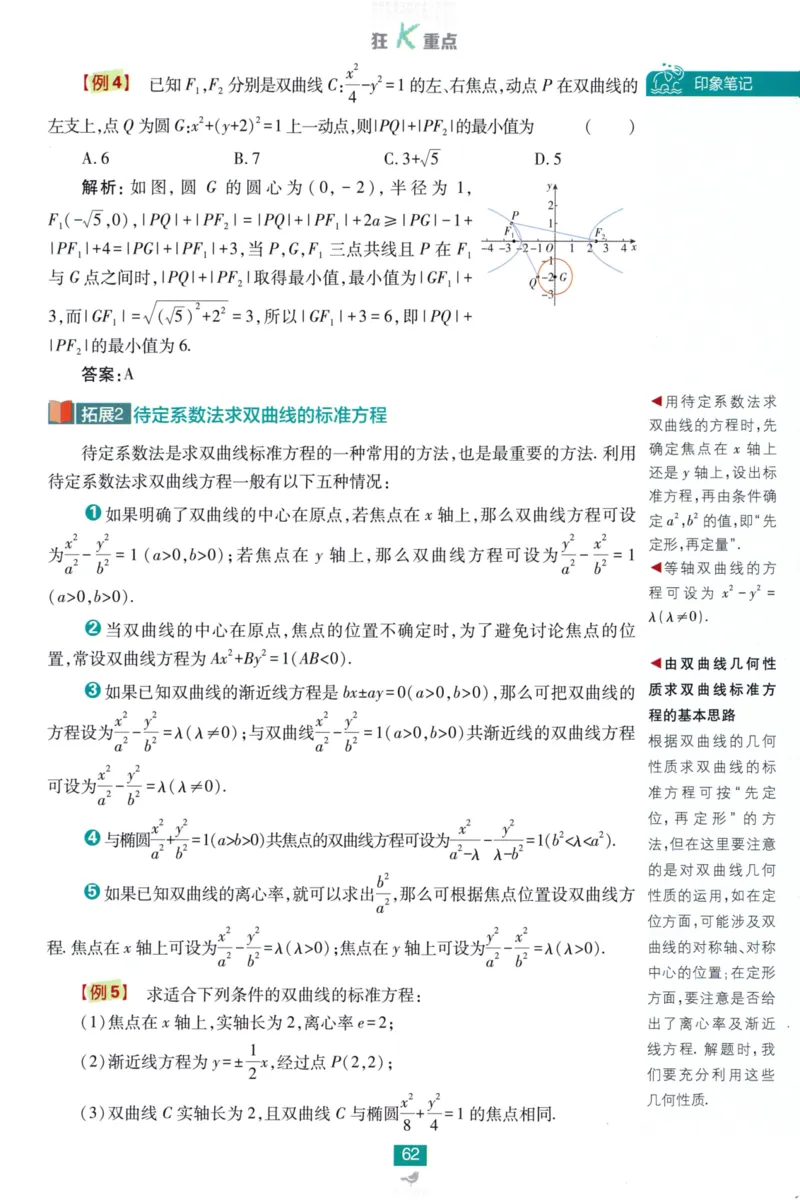 狂K重点
【例4】 已知F₁,F₂分别是双曲线C:x²/4-y²=1的左、右焦点,动点P在双曲线的
左支上,点Q为圆G:x²+(y+2)²=1上一动点,则|PQ|+|PF₂|的最小值为 ( )
A.6 B.7 C.3+√5 D.5
解析:如图,圆G的圆心为(0,-2),半径为1,
F₁(-√5,0),|PQ|+|PF₂|=|PQ|+|PF₁|+2a≥|PG|-1+
|PF₁|+4=|PG|+|PF₁|+3,当P,G,F₁三点共线且P在F₁
与G点之间时,|PQ|+|PF₂|取得最小值,最小值为|GF₁|+
3,而|GF₁|=√((√5)²+2²)=3,所以|GF₁|+3=6,即|PQ|+
|PF₂|的最小值为6.
答案:A
y
2
P
1
F₁
F₂
-4 -3 -2 -1 O 1 2 3 4 x
-1
Q
-2
G
-3
拓展2 待定系数法求双曲线的标准方程
待定系数法是求双曲线标准方程的一种常用的方法,也是最重要的方法.利用
待定系数法求双曲线方程一般有以下五种情况:
❶如果明确了双曲线的中心在原点,若焦点在x轴上,那么双曲线方程可设
为x²/a²-y²/b²=1(a>0,b>0);若焦点在y轴上,那么双曲线方程可设为y²/a²-x²/b²=1
(a>0,b>0).
❷当双曲线的中心在原点,焦点的位置不确定时,为了避免讨论焦点的位
置,常设双曲线方程为Ax²+By²=1(AB<0).
❸如果已知双曲线的渐近线方程是bx±ay=0(a>0,b>0),那么可把双曲线的
方程设为x²/a²-y²/b²=λ(λ≠0);与双曲线x²/a²-y²/b²=1(a>0,b>0)共渐近线的双曲线方程
可设为x²/a²-y²/b²=λ(λ≠0).
❹与椭圆x²/a²+y²/b²=1(a>b>0)共焦点的双曲线方程可设为x²/(a²-λ)-y²/(λ-b²)=1(b²<λ<a²).
❺如果已知双曲线的离心率,就可以求出b²/a²,那么可根据焦点位置设双曲线方
程.焦点在x轴上可设为x²/a²-y²/b²=λ(λ>0);焦点在y轴上可设为y²/a²-x²/b²=λ(λ>0).
【例5】 求适合下列条件的双曲线的标准方程:
(1)焦点在x轴上,实轴长为2,离心率e=2;
(2)渐近线方程为y=±1/2x,经过点P(2,2);
(3)双曲线C实轴长为2,且双曲线C与椭圆x²/8+y²/4=1的焦点相同.
印象笔记
◀用待定系数法求
双曲线的方程时,先
确定焦点在x轴上
还是y轴上,设出标
准方程,再由条件确
定a²,b²的值,即“先
定形,再定量”.
◀等轴双曲线的方
程可设为x²-y²=
λ(λ≠0).
◀由双曲线几何性
质求双曲线标准方
程的基本思路
根据双曲线的几何
性质求双曲线的标
准方程可按“先定
位,再定形”的方
法,但在这里要注意
的是对双曲线几何
性质的运用,如在定
位方面,可能涉及双
曲线的对称轴、对称
中心的位置;在定形
方面,要注意是否给
出了离心率及渐近
线方程.解题时,我
们要充分利用这些
几何性质.
62